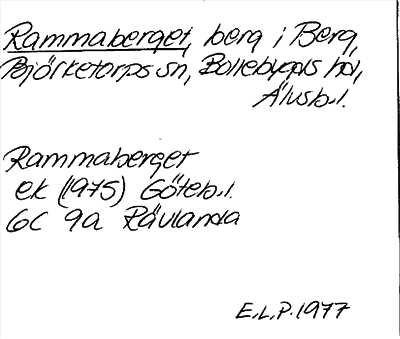 Rammaberget, berg i Berg,
Björketorps sn, Bollebygds hd,
Älvsb.l.
Rammaberget
ek (1975) Göteb.l.
6C 9a Rävlanda
E.L.P. 1977